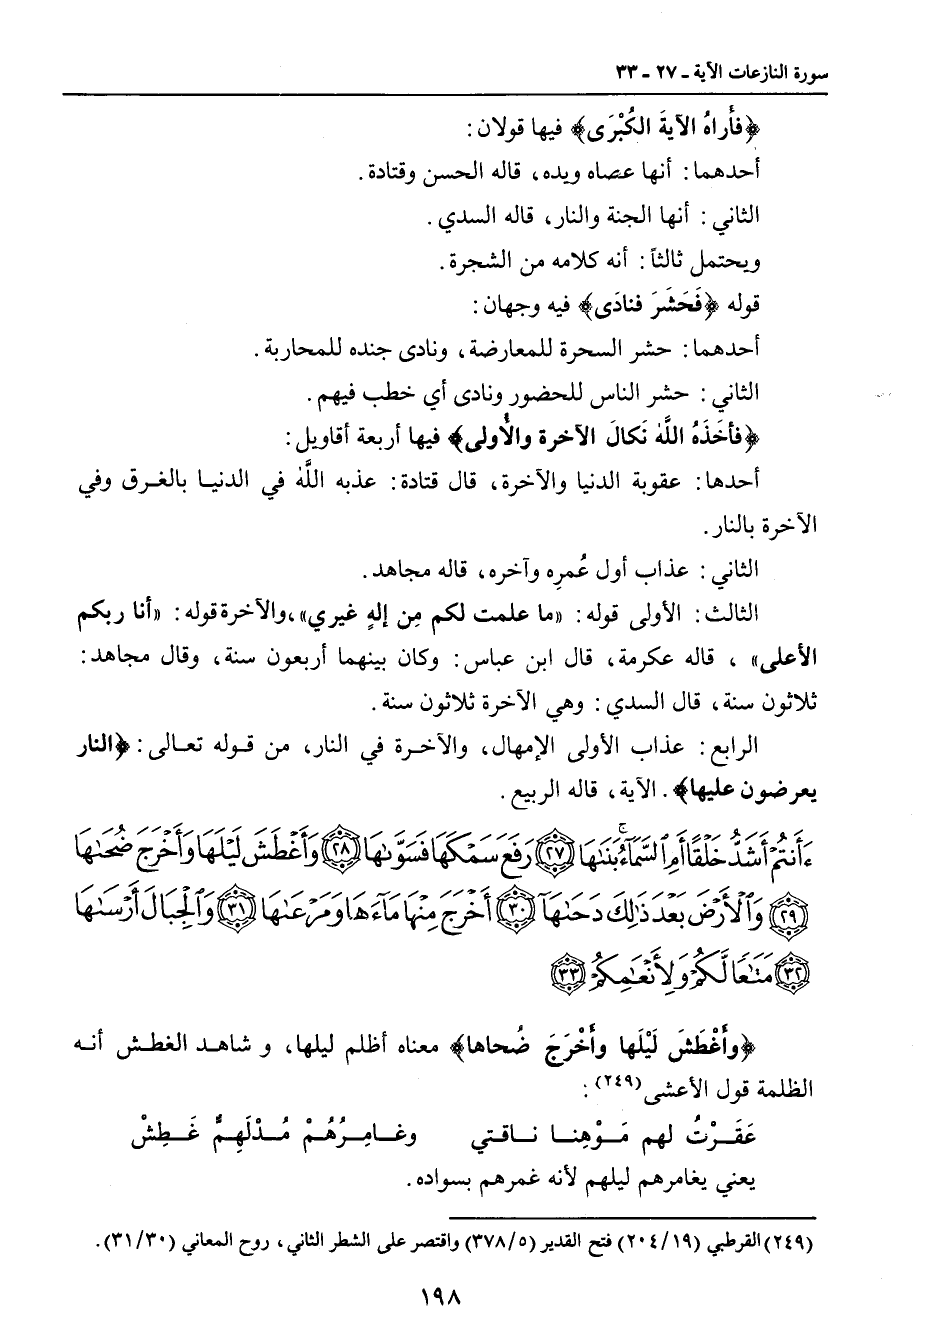 سورة النازعات الآية ـ ٢٧ ـ ٣٣
﴿فأراهُ الآيةَ الكُبْرَى﴾ فيها قولان:
أحدهما: أنها عصاه ويده، قاله الحسن وقتادة.
الثاني: أنها الجنة والنار، قاله السدي.
ويحتمل ثالثاً: أنه كلامه من الشجرة.
قوله ﴿فَحَشَرَ فنادَى﴾ فيه وجهان:
أحدهما: حشر السحرة للمعارضة، ونادى جنده للمحاربة.
الثاني: حشر الناس للحضور ونادى أي خطب فيهم.
﴿فأخَذَهُ اللَّه نَكالَ الآخرة والأُولى﴾ فيها أربعة أقاويل:
أحدها: عقوبة الدنيا والآخرة، قال قتادة: عذبه اللَّه في الدنيا بالغرق وفي
الآخرة بالنار.
الثاني: عذاب أول عُمرِه وآخره، قاله مجاهد.
الثالث: الأولى قوله: «ما علمت لكم مِن إلهٍ غيري»،والآخرة قوله: «أنا ربكم
الأعلى» ، قاله عكرمة، قال ابن عباس: وكان بينهما أربعون سنة، وقال مجاهد:
ثلاثون سنة، قال السدي: وهي الآخرة ثلاثون سنة.
الرابع: عذاب الأولى الإمهال، والآخرة في النار، من قوله تعالى: ﴿النار
يعرضون عليها﴾. الآية، قاله الربيع.
ءَأَنتُمْ أَشَدُّ خَلْقًا أَمِ ٱلسَّمَآءُ ۚ بَنَىٰهَا ﴿٢٧﴾ رَفَعَ سَمْكَهَا فَسَوَّىٰهَا ﴿٢٨﴾ وَأَغْطَشَ لَيْلَهَا وَأَخْرَجَ ضُحَىٰهَا
﴿٢٩﴾ وَٱلْأَرْضَ بَعْدَ ذَٰلِكَ دَحَىٰهَآ ﴿٣٠﴾ أَخْرَجَ مِنْهَا مَآءَهَا وَمَرْعَىٰهَا ﴿٣١﴾ وَٱلْجِبَالَ أَرْسَىٰهَا
﴿٣٢﴾ مَتَٰعًا لَّكُمْ وَلِأَنْعَٰمِكُمْ ﴿٣٣﴾
﴿وأَغْطَشَ لَيْلَها وأَخْرَجَ ضُحاها﴾ معناه أظلم ليلها، و شاهد الغطش أنه
الظلمة قول الأعشى(٢٤٩):
عَقَرْتُ لهم مَوْهِنا ناقتي    وغامِرُهُمْ مُدْلَهِمٌّ غَطِشْ
يعني يغامرهم ليلهم لأنه غمرهم بسواده.
(٢٤٩) القرطبي (٢٠٤/١٩) فتح القدير (٣٧٨/٥) واقتصر على الشطر الثاني، روح المعاني (٣١/٣٠).
١٩٨